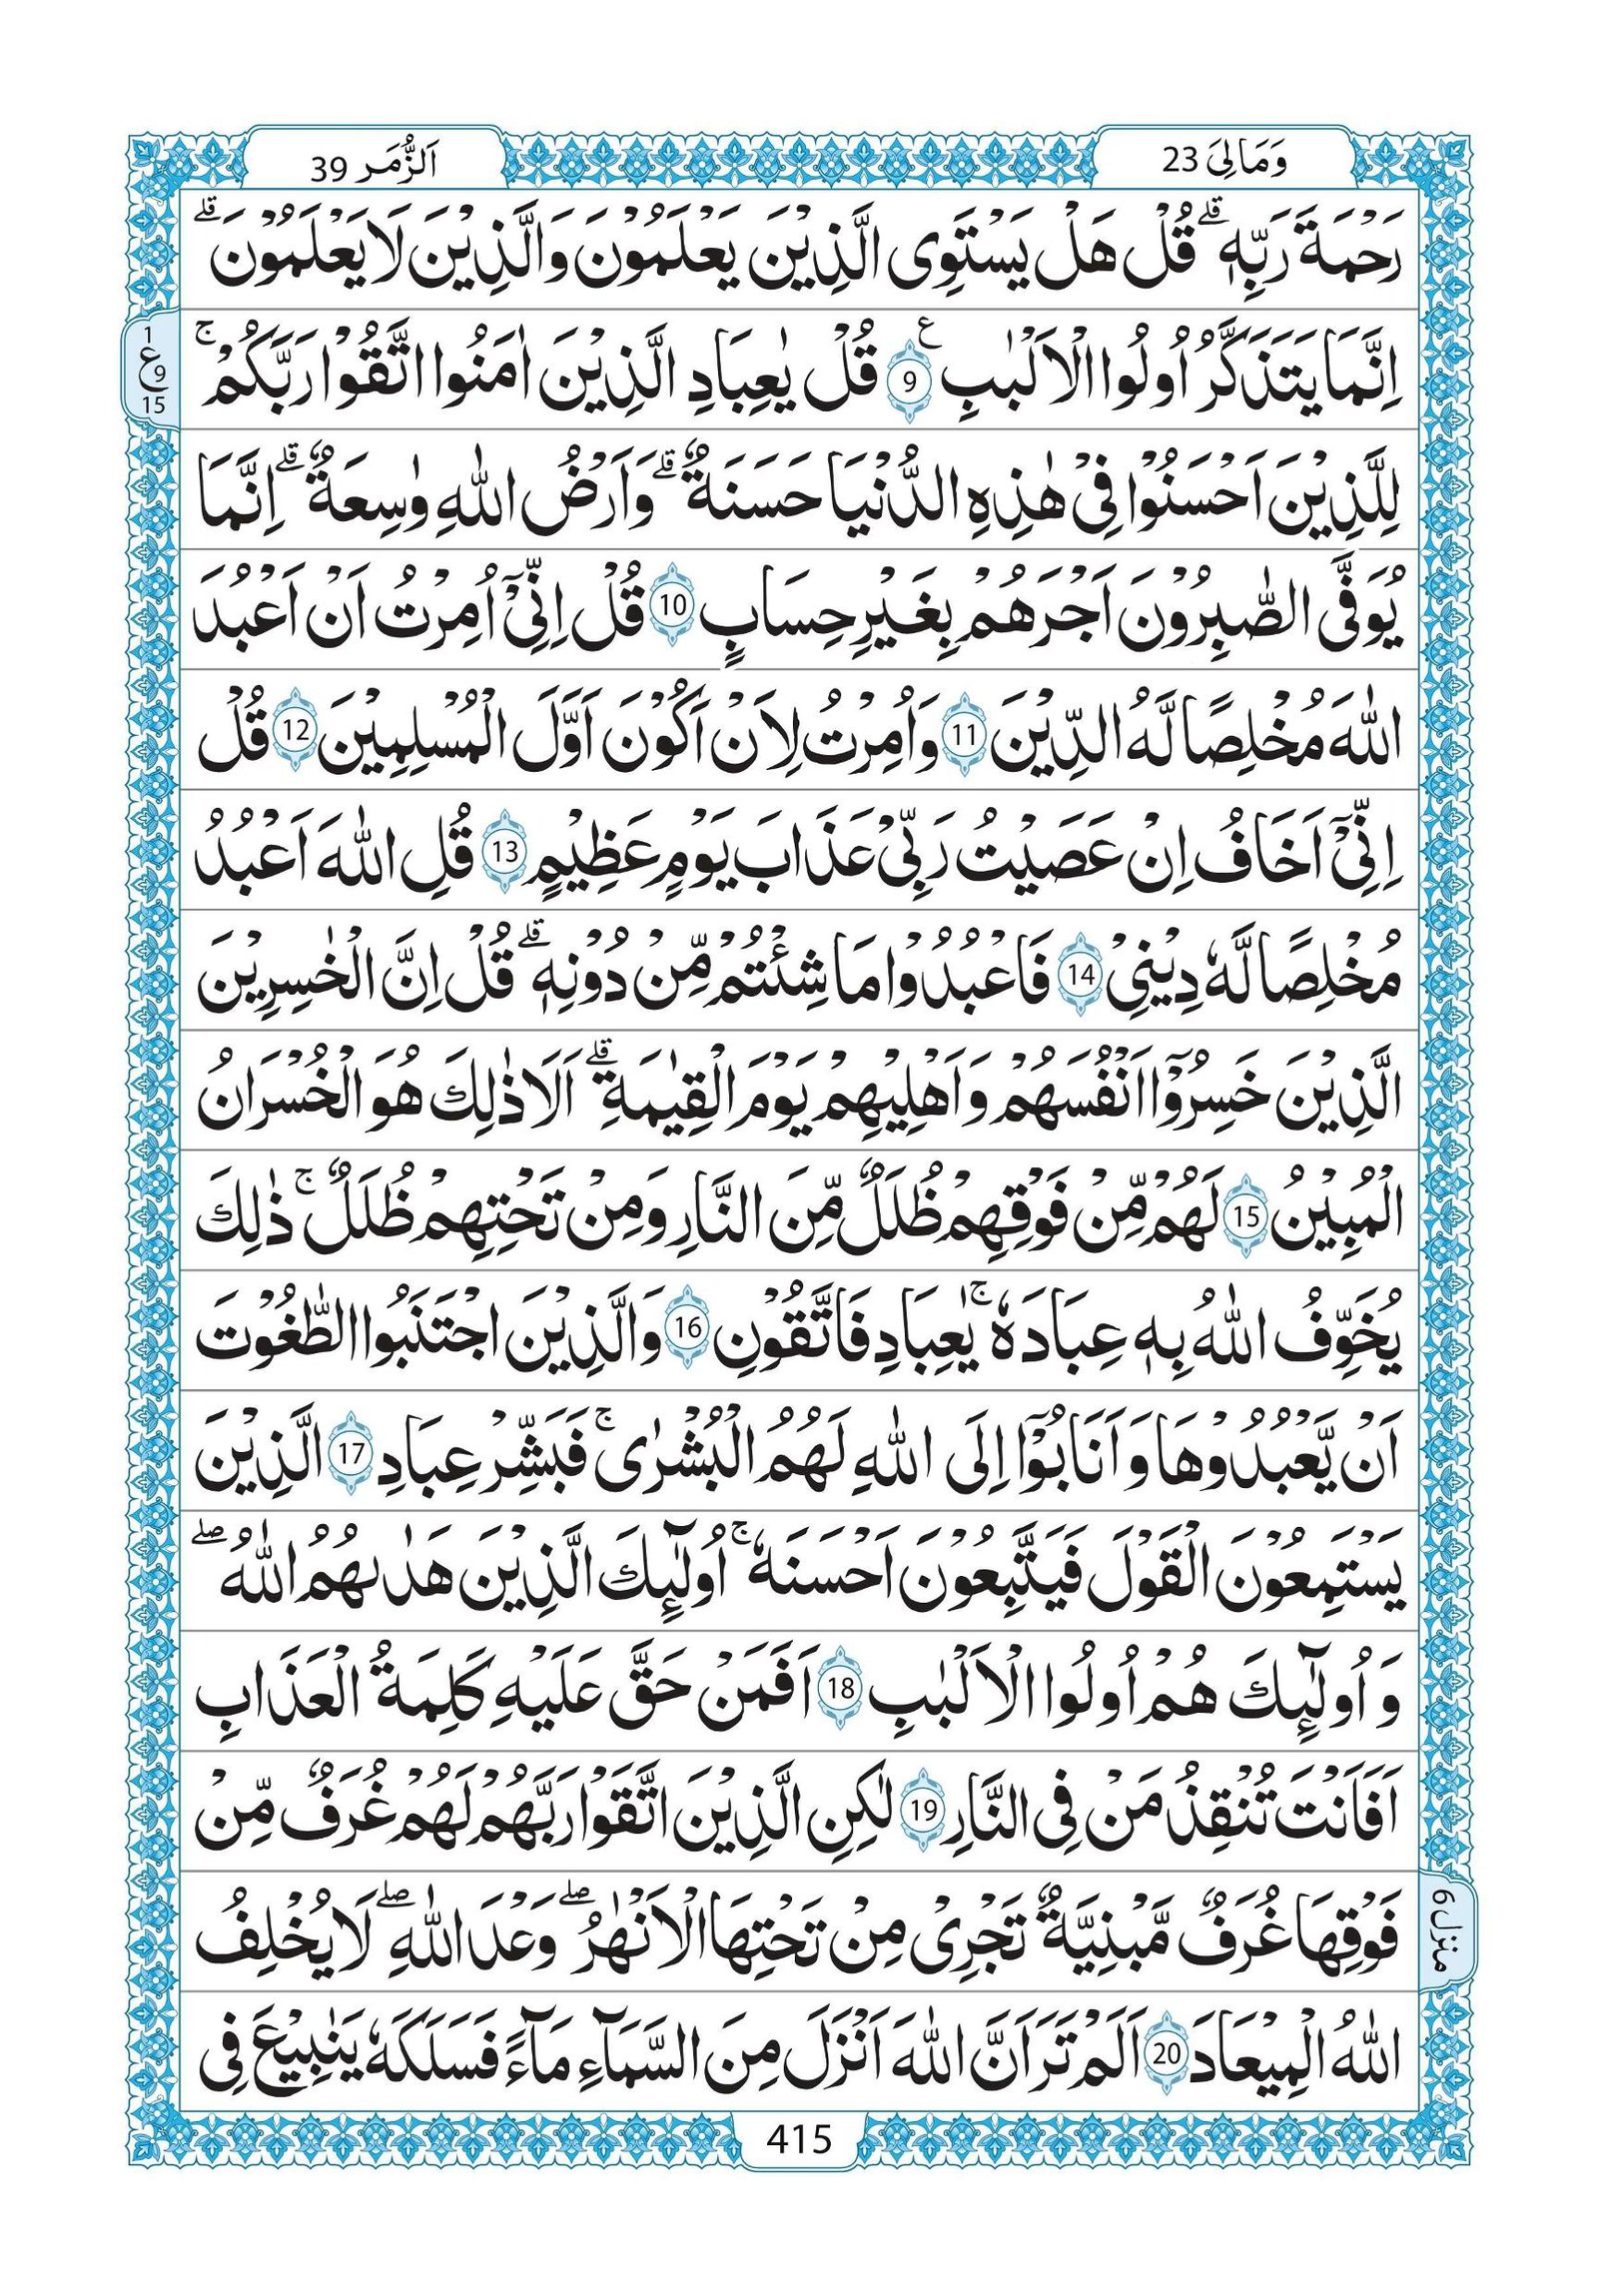 وَمَالِیَ 23
اَلزُّمَر 39
رَحْمَةَ رَبِّهٖ ؕ قُلْ هَلْ یَسْتَوِی الَّذِیْنَ یَعْلَمُوْنَ وَالَّذِیْنَ لَا یَعْلَمُوْنَ ؕ
اِنَّمَا یَتَذَكَّرُ اُولُوا الْاَلْبٰبِ 9 قُلْ یٰعِبَادِ الَّذِیْنَ اٰمَنُوا اتَّقُوْا رَبَّكُمْ ۚ
1
ع 9
15
لِلَّذِیْنَ اَحْسَنُوْا فِیْ هٰذِهِ الدُّنْیَا حَسَنَةٌ ؕ وَاَرْضُ اللّٰهِ وٰسِعَةٌ ؕ اِنَّمَا
یُوَفَّی الصّٰبِرُوْنَ اَجْرَهُمْ بِغَیْرِ حِسَابٍ 10 قُلْ اِنِّیْۤ اُمِرْتُ اَنْ اَعْبُدَ
اللّٰهَ مُخْلِصًا لَّهُ الدِّیْنَ 11 وَاُمِرْتُ لِاَنْ اَكُوْنَ اَوَّلَ الْمُسْلِمِیْنَ 12 قُلْ
اِنِّیْۤ اَخَافُ اِنْ عَصَیْتُ رَبِّیْ عَذَابَ یَوْمٍ عَظِیْمٍ 13 قُلِ اللّٰهَ اَعْبُدُ
مُخْلِصًا لَّهٗ دِیْنِیْ 14 فَاعْبُدُوْا مَا شِئْتُمْ مِّنْ دُوْنِهٖ ؕ قُلْ اِنَّ الْخٰسِرِیْنَ
الَّذِیْنَ خَسِرُوْۤا اَنْفُسَهُمْ وَاَهْلِیْهِمْ یَوْمَ الْقِیٰمَةِ ؕ اَلَا ذٰلِكَ هُوَ الْخُسْرَانُ
الْمُبِیْنُ 15 لَهُمْ مِّنْ فَوْقِهِمْ ظُلَلٌ مِّنَ النَّارِ وَمِنْ تَحْتِهِمْ ظُلَلٌ ۚ ذٰلِكَ
یُخَوِّفُ اللّٰهُ بِهٖ عِبَادَهٗ ۚ یٰعِبَادِ فَاتَّقُوْنِ 16 وَالَّذِیْنَ اجْتَنَبُوا الطّٰغُوْتَ
اَنْ یَّعْبُدُوْهَا وَاَنَابُوْۤا اِلَی اللّٰهِ لَهُمُ الْبُشْرٰی ۚ فَبَشِّرْ عِبَادِ 17 الَّذِیْنَ
یَسْتَمِعُوْنَ الْقَوْلَ فَیَتَّبِعُوْنَ اَحْسَنَهٗ ۚ اُولٰٓئِكَ الَّذِیْنَ هَدٰىهُمُ اللّٰهُ ۖ
وَاُولٰٓئِكَ هُمْ اُولُوا الْاَلْبٰبِ 18 اَفَمَنْ حَقَّ عَلَیْهِ كَلِمَةُ الْعَذَابِ
اَفَاَنْتَ تُنْقِذُ مَنْ فِی النَّارِ 19 لٰكِنِ الَّذِیْنَ اتَّقَوْا رَبَّهُمْ لَهُمْ غُرَفٌ مِّنْ
فَوْقِهَا غُرَفٌ مَّبْنِیَّةٌ تَجْرِیْ مِنْ تَحْتِهَا الْاَنْهٰرُ ۖ وَعْدَ اللّٰهِ ۖ لَا یُخْلِفُ
منزل 6
اللّٰهُ الْمِیْعَادَ 20 اَلَمْ تَرَ اَنَّ اللّٰهَ اَنْزَلَ مِنَ السَّمَآءِ مَآءً فَسَلَكَهٗ یَنٰبِیْعَ فِی
415